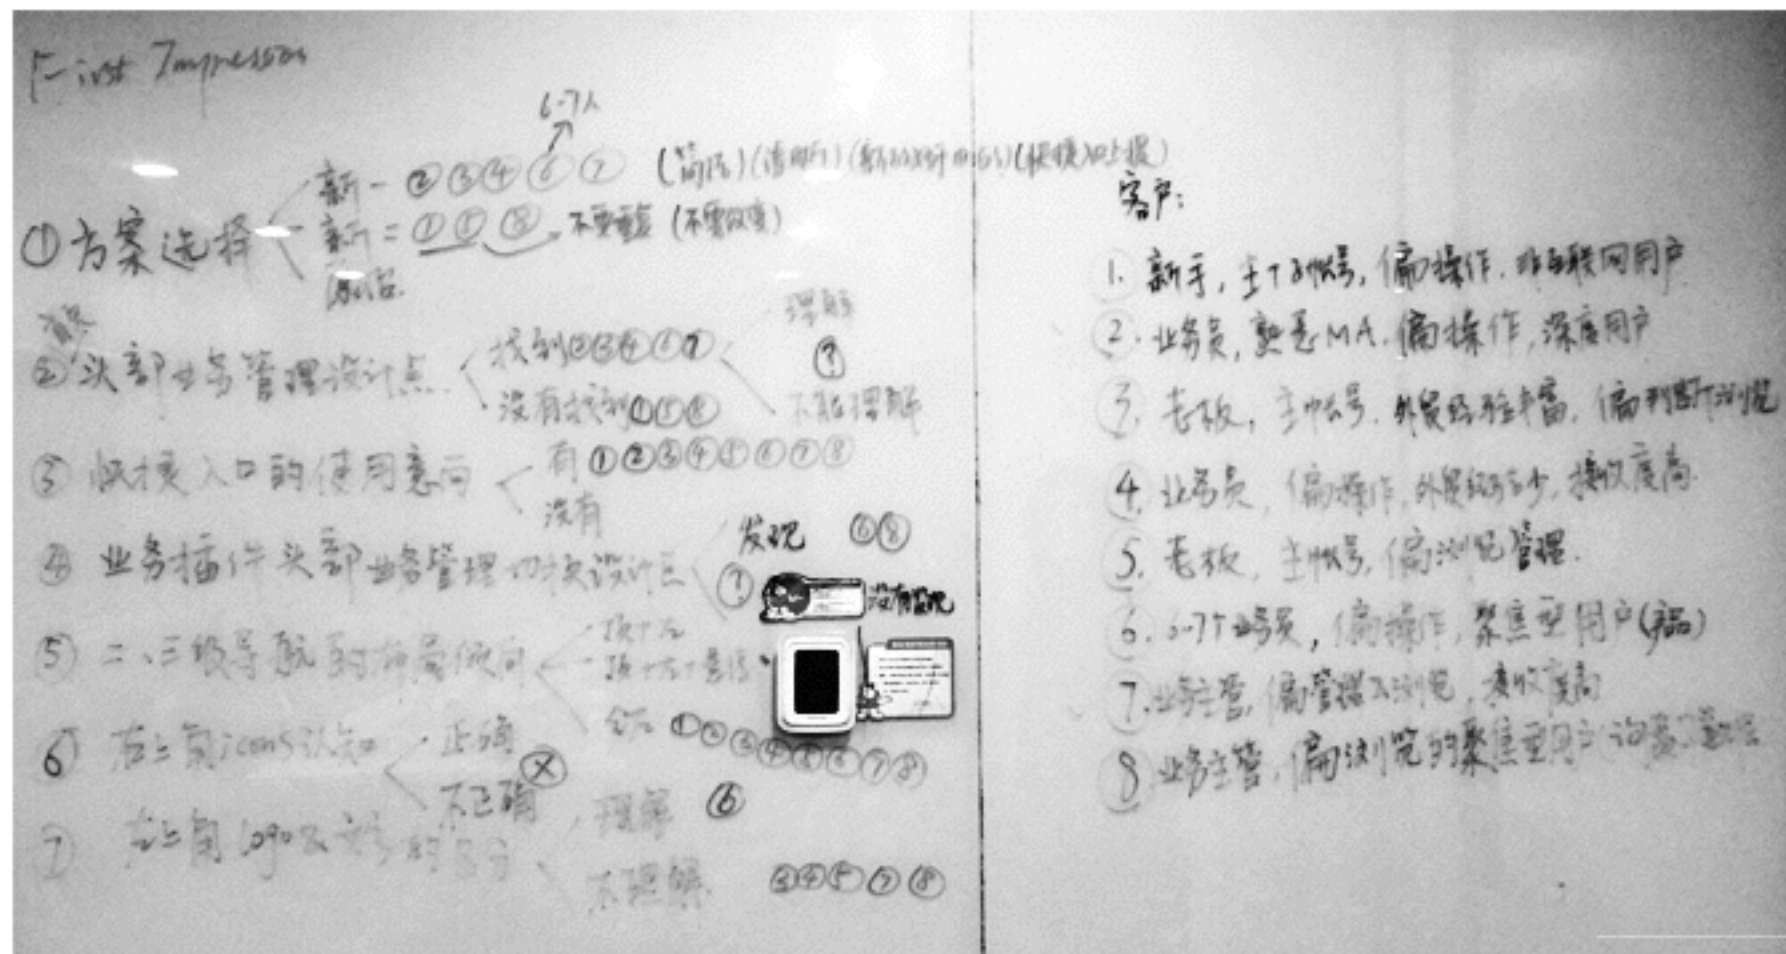 First Impression
6-7人
①方案选择
新一 ②③④⑥⑦ (简洁)
新二 ①⑤⑧ 不要重复 (不要改变)
②头部业务管理设计点
找到②③④⑥⑦
没有找到①⑤⑧
理解
?
不能理解
③ 快捷入口的使用意向
有 ①②③④⑤⑥⑦⑧
没有
④ 业务插件头部业务管理切换设计
发现 ⑥⑧
? 没有发现
⑤ 二、三级导航的布局倾向
顶+左
①②③④⑤⑥⑦⑧
⑥ 右上角icons认知
正确
不正确
⑦ 左上角logo&
理解 ⑥
不理解 ③④⑤⑦⑧
客户:
1. 新手, 主+子帐号, 偏操作, 非互联网用户
2. 业务员, 熟悉MA, 偏操作, 深度用户
3. 老板, 主帐号, 外贸经验丰富, 偏浏览
4. 业务员, 偏操作, 外贸经验少, 接收度高
5. 老板, 主帐号, 偏浏览管理.
6. 6-7个业务员, 偏操作, 聚焦型用户(产品)
7. 业务主管, 偏管理及浏览, 接收度高
8. 业务主管, 偏浏览的聚焦型用户